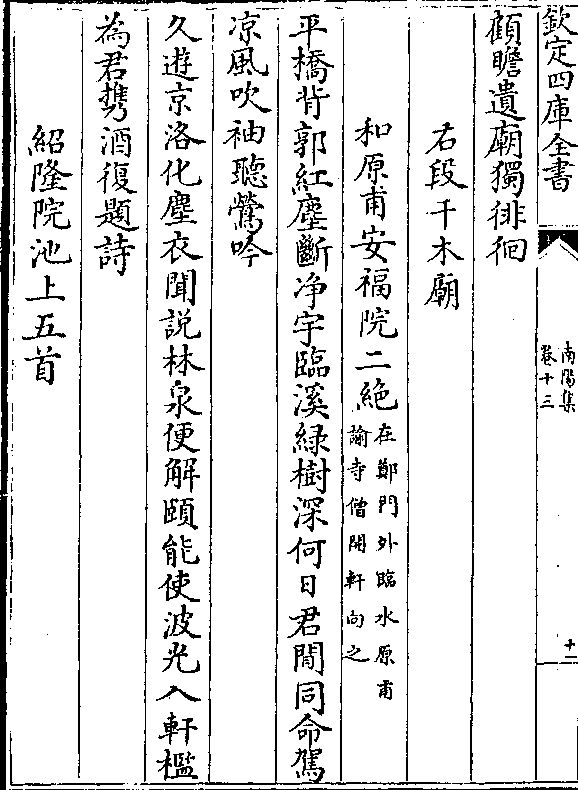 欽定四庫全書
南陽集
卷十三
十一
顧瞻遺廟獨徘徊
右段干木廟
和原甫安福院二絶
在鄭門外臨水原甫
諭寺僧開軒向之
平橋背郭紅塵斷净宇臨溪緑樹深何日君閒同命駕
凉風吹袖聽鶯吟
久遊京洛化塵衣聞説林泉便解頤能使波光入軒檻
為君携酒復題詩
紹隆院池上五首